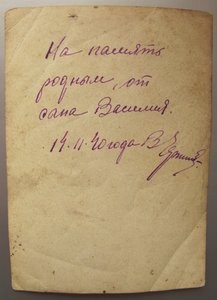 На память
родным, от
сана Василия.
14.11.40 года В